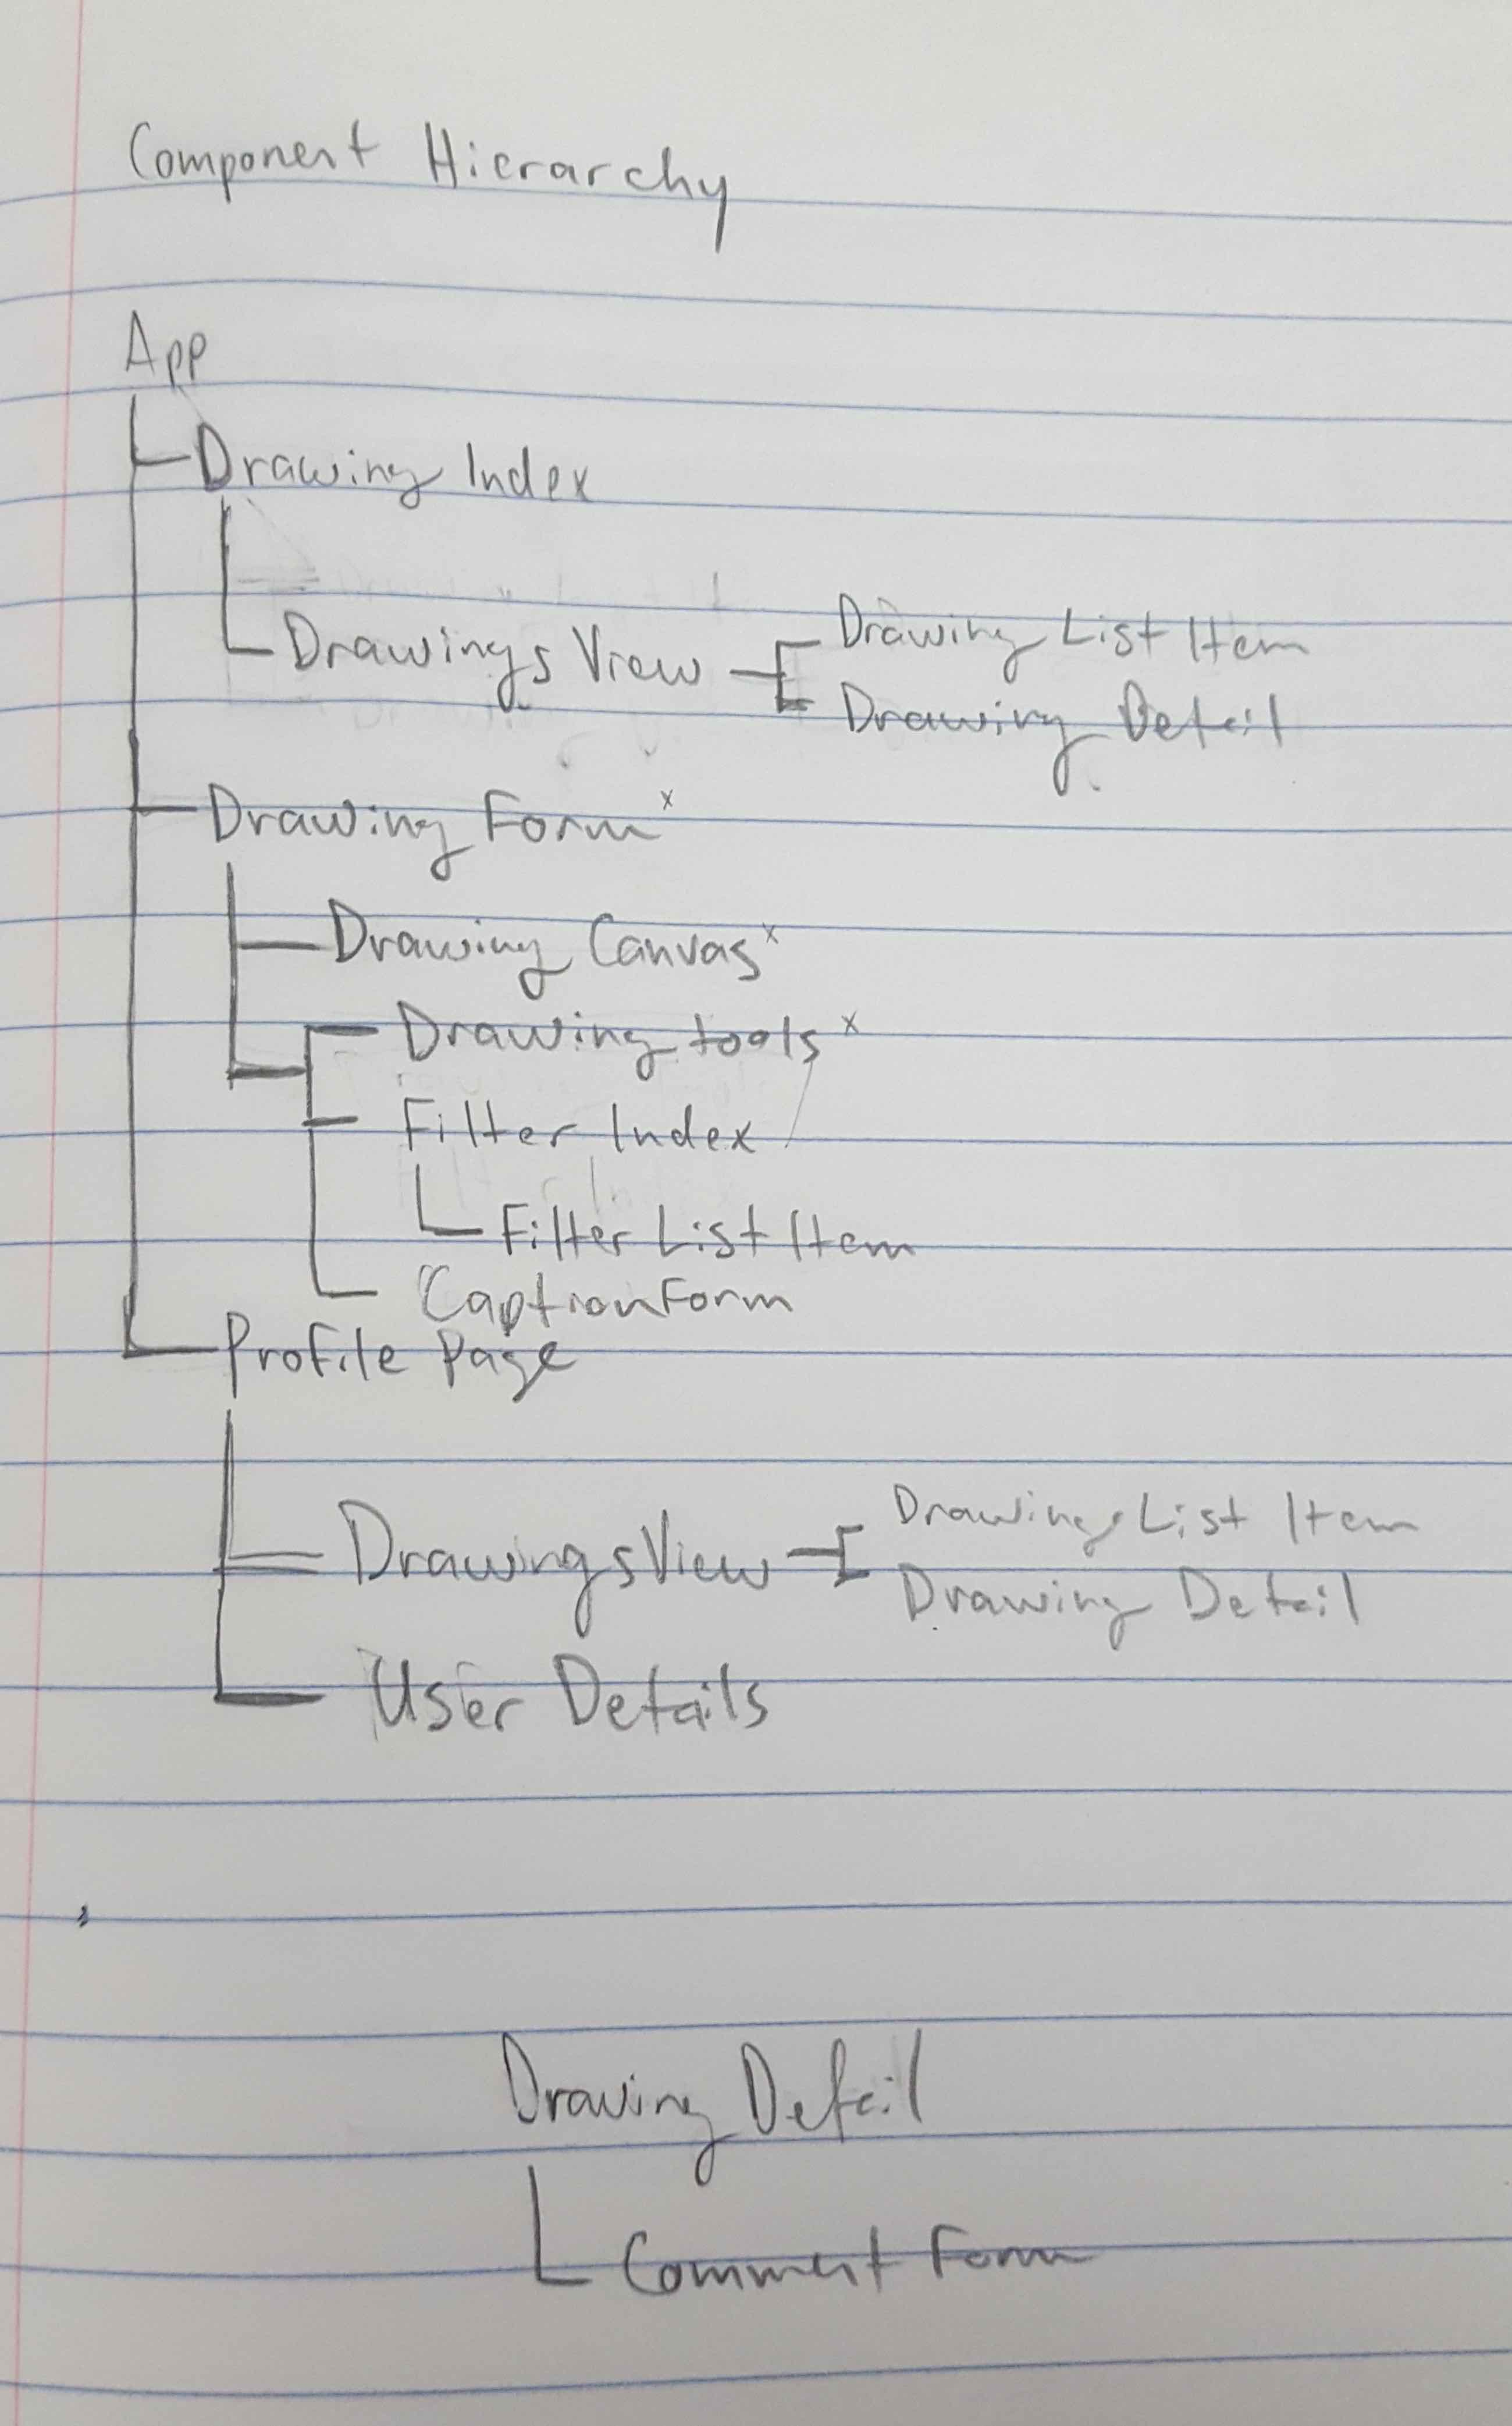 Component Hierarchy
App
Drawing Index
Drawings View
Drawing List Item
Drawing Detail
Drawing Form x
Drawing Canvas x
Drawing tools x
Filter Index
Filter List Item
CaptionForm
Profile Page
DrawingsView
Drawing List Item
Drawing Detail
User Details
Drawing Detail
Comment Form